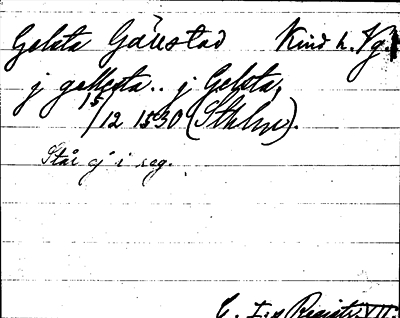 Golsta Gärestad Kind h. Vg.
j gollesta.. j Golsta,
15/12 1530 (Sthlm).
Står ej i reg.
G. I:s Registr. VII.